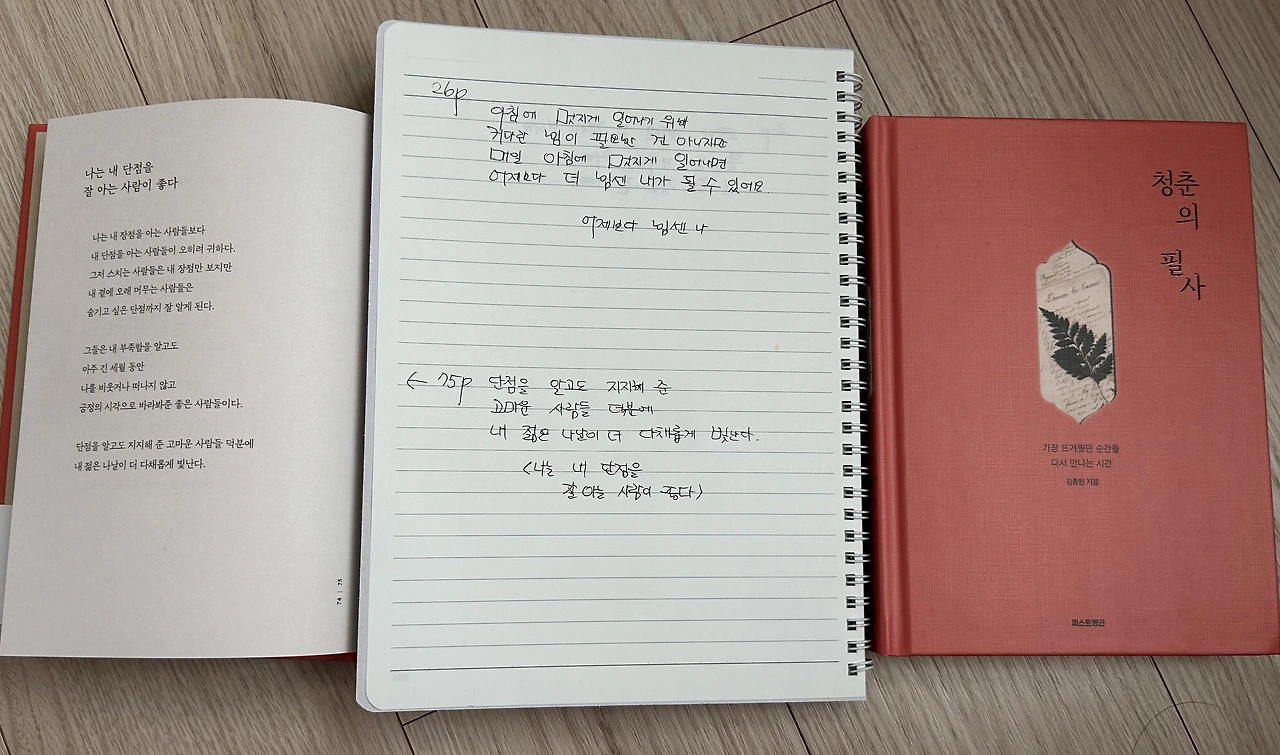 나는 내 단점을
잘 아는 사람이 좋다
나는 내 장점을 아는 사람들보다
내 단점을 아는 사람들이 오히려 귀하다.
그저 스치는 사람들은 내 장점만 보지만
내 곁에 오래 머무는 사람들은
숨기고 싶은 단점까지 잘 알게 된다.
그들은 내 부족함을 알고도
아주 긴 세월 동안
나를 비웃거나 떠나지 않고
긍정의 시각으로 바라봐준 좋은 사람들이다.
단점을 알고도 지지해 준 고마운 사람들 덕분에
내 젊은 나날이 더 다채롭게 빛난다.
74 | 75
26p
아침에 멋지게 일어나기 위해
커다란 힘이 필요한 건 아니지만
매일 아침에 멋지게 일어나면
어제보다 더 힘센 내가 될 수 있어요.
어제보다 힘센 나
← 75p 단점을 알고도 지지해 준
고마운 사람들 덕분에
내 젊은 나날이 더 다채롭게 빛난다.
<나는 내 단점을
잘 아는 사람이 좋다>
청춘
의
필
사
가장 뜨거웠던 순간을
다시 만나는 시간
김종원 지음
퍼스트펭귄